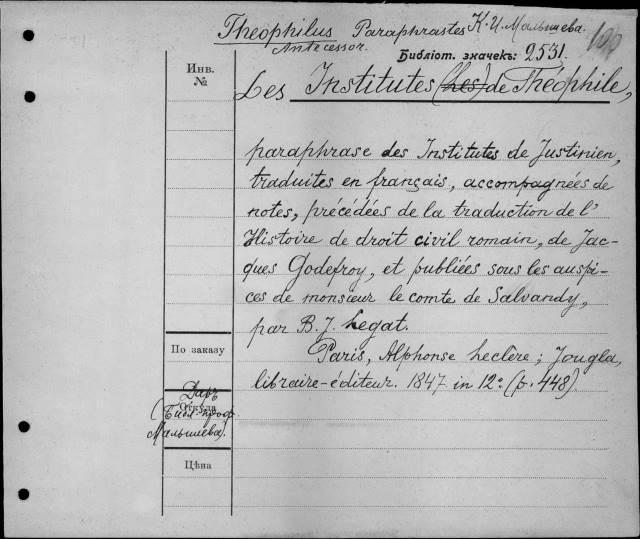 Theophilus Paraphrastes К. И. Малышева.
Antecessor.
Библіот. значекъ: 2531.
Инв.
№
Les Institutes (Les) de Théophile,
paraphrase des Institutes de Justinien,
traduites en français, accompagnées de
notes, précédées de la traduction de l'
Histoire de droit civil romain, de Jac-
ques Godefroy, et publiées sous les auspi-
ces de monsieur le comte de Salvandy,
par B. J. Legat.
По заказу
Paris, Alphonse Leclère; Jougla,
libraire-éditeur. 1847 in 12º (p. 448).
Даръ
Откуда
(Библ. проф.
Малышева).
Цѣна